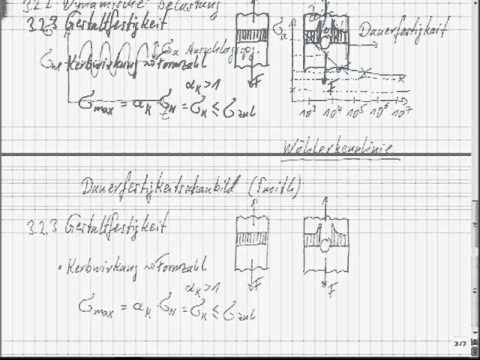 3.2.2 Dynamische Belastung
3.2.3 Gestaltfestigkeit
Dauerfestigkeit
• Kerbwirkung → Formzahl
αk > 1
σmax = αk · σN = σk ≤ σzul
F
F
10³ 10⁴ 10⁵ 10⁶ 10⁷
Wöhlerkennlinie
Dauerfestigkeitsschaubild (Smith)
3.2.3 Gestaltfestigkeit
• Kerbwirkung → Formzahl
αk > 1
F
F
σmax = αk · σN = σk ≤ σzul